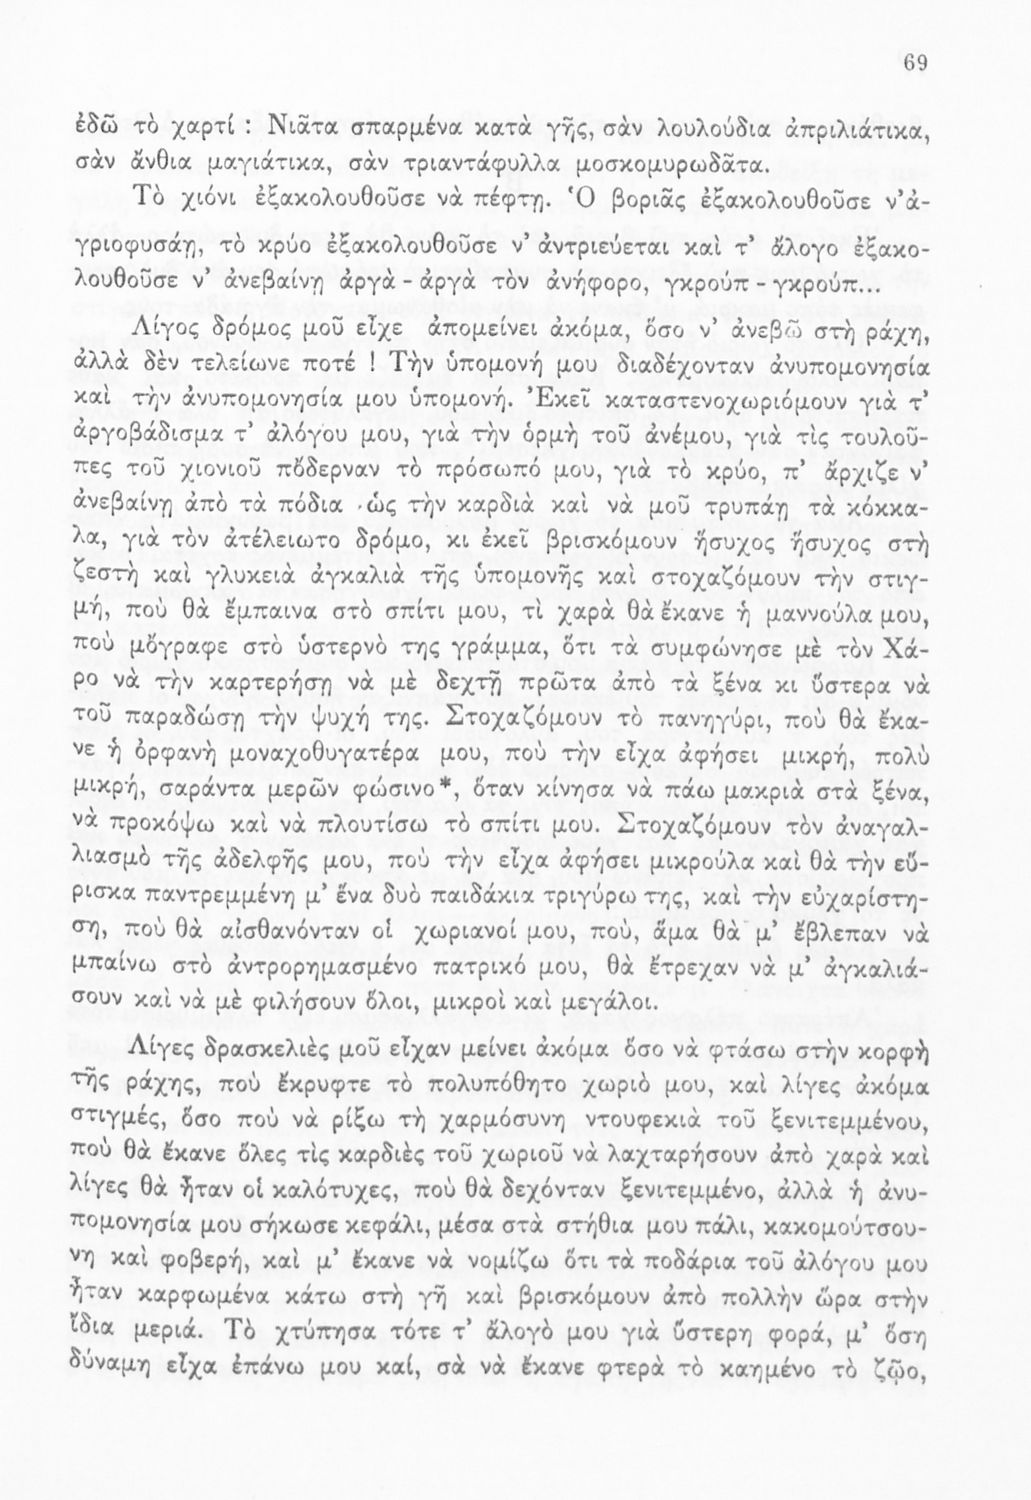 69
ἐδῶ τὸ χαρτί : Νιᾶτα σπαρμένα κατὰ γῆς, σὰν λουλούδια ἀπριλιάτικα,
σὰν ἄνθια μαγιάτικα, σὰν τριαντάφυλλα μοσκομυρωδᾶτα.
Τὸ χιόνι ἐξακολουθοῦσε νὰ πέφτῃ. Ὁ βοριᾶς ἐξακολουθοῦσε ν’ἀ-
γριοφυσάῃ, τὸ κρύο ἐξακολουθοῦσε ν’ ἀντριεύεται καὶ τ’ ἄλογο ἐξακο-
λουθοῦσε ν’ ἀνεβαίνῃ ἀργὰ - ἀργὰ τὸν ἀνήφορο, γκρούπ - γκρούπ...
Λίγος δρόμος μοῦ εἶχε ἀπομείνει ἀκόμα, ὅσο ν’ ἀνεβῶ στὴ ράχη,
ἀλλὰ δὲν τελείωνε ποτέ ! Τὴν ὑπομονή μου διαδέχονταν ἀνυπομονησία
καὶ τὴν ἀνυπομονησία μου ὑπομονή. Ἐκεῖ καταστενοχωριόμουν γιὰ τ’
ἀργοβάδισμα τ’ ἀλόγου μου, γιὰ τὴν ὁρμὴ τοῦ ἀνέμου, γιὰ τὶς τουλοῦ-
πες τοῦ χιονιοῦ πὄδερναν τὸ πρόσωπό μου, γιὰ τὸ κρύο, π’ ἄρχιζε ν’
ἀνεβαίνῃ ἀπὸ τὰ πόδια ὡς τὴν καρδιὰ καὶ νὰ μοῦ τρυπάῃ τὰ κόκκα-
λα, γιὰ τὸν ἀτέλειωτο δρόμο, κι ἐκεῖ βρισκόμουν ἥσυχος ἥσυχος στὴ
ζεστὴ καὶ γλυκειὰ ἀγκαλιὰ τῆς ὑπομονῆς καὶ στοχαζόμουν τὴν στιγ-
μή, ποὺ θὰ ἔμπαινα στὸ σπίτι μου, τὶ χαρὰ θὰ ἔκανε ἡ μαννούλα μου,
ποὺ μὄγραφε στὸ ὑστερνὸ της γράμμα, ὅτι τὰ συμφώνησε μὲ τὸν Χά-
ρο νὰ τὴν καρτερήσῃ νὰ μὲ δεχτῇ πρῶτα ἀπὸ τὰ ξένα κι ὕστερα νὰ
τοῦ παραδώσῃ τὴν ψυχή της. Στοχαζόμουν τὸ πανηγύρι, ποὺ θὰ ἔκα-
νε ἡ ὀρφανὴ μοναχοθυγατέρα μου, ποὺ τὴν εἶχα ἀφήσει μικρή, πολὺ
μικρή, σαράντα μερῶν φώσινο*, ὅταν κίνησα νὰ πάω μακριὰ στὰ ξένα,
νὰ προκόψω καὶ νὰ πλουτίσω τὸ σπίτι μου. Στοχαζόμουν τὸν ἀναγαλ-
λιασμὸ τῆς ἀδελφῆς μου, ποὺ τὴν εἶχα ἀφήσει μικρούλα καὶ θὰ τὴν εὕ-
ρισκα παντρεμμένη μ’ ἕνα δυὸ παιδάκια τριγύρω της, καὶ τὴν εὐχαρίστη-
ση, ποὺ θὰ αἰσθανόνταν οἱ χωριανοί μου, ποὺ, ἅμα θὰ μ’ ἔβλεπαν νὰ
μπαίνω στὸ ἀντρορημασμένο πατρικό μου, θὰ ἔτρεχαν νὰ μ’ ἀγκαλιά-
σουν καὶ νὰ μὲ φιλήσουν ὅλοι, μικροὶ καὶ μεγάλοι.
Λίγες δρασκελιὲς μοῦ εἶχαν μείνει ἀκόμα ὅσο νὰ φτάσω στὴν κορφὴ
τῆς ράχης, ποὺ ἔκρυφτε τὸ πολυπόθητο χωριὸ μου, καὶ λίγες ἀκόμα
στιγμές, ὅσο ποὺ νὰ ρίξω τὴ χαρμόσυνη ντουφεκιὰ τοῦ ξενιτεμμένου,
ποὺ θὰ ἔκανε ὅλες τὶς καρδιὲς τοῦ χωριοῦ νὰ λαχταρήσουν ἀπὸ χαρὰ καὶ
λίγες θὰ ἦταν οἱ καλότυχες, ποὺ θὰ δεχόνταν ξενιτεμμένο, ἀλλὰ ἡ ἀνυ-
πομονησία μου σήκωσε κεφάλι, μέσα στὰ στήθια μου πάλι, κακομούτσου-
νη καὶ φοβερή, καὶ μ’ ἔκανε νὰ νομίζω ὅτι τὰ ποδάρια τοῦ ἀλόγου μου
ἦταν καρφωμένα κάτω στὴ γῆ καὶ βρισκόμουν ἀπὸ πολλὴν ὥρα στὴν
ἴδια μεριά. Τὸ χτύπησα τότε τ’ ἄλογὸ μου γιὰ ὕστερη φορά, μ’ ὅση
δύναμη εἶχα ἐπάνω μου καί, σὰ νὰ ἔκανε φτερὰ τὸ καημένο τὸ ζῷο,